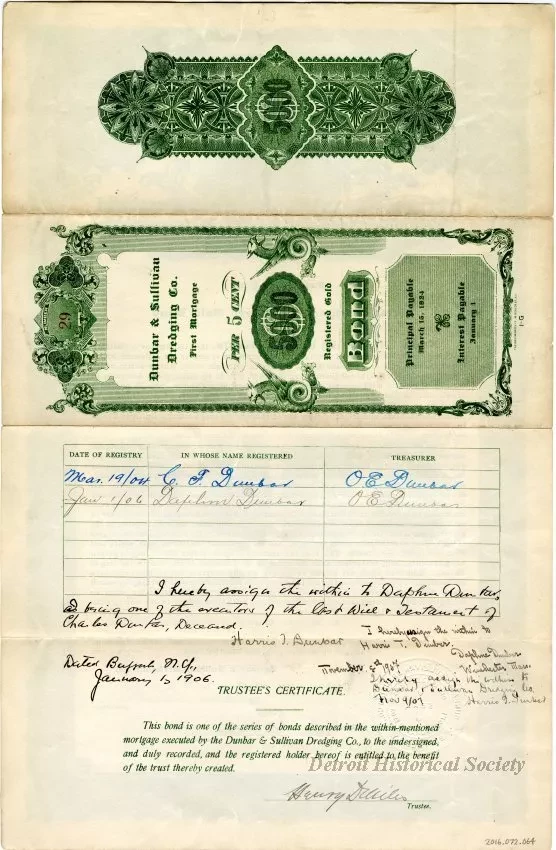 5000
29
Dunbar & Sullivan
Dredging Co.
First Mortgage
PER 5 CENT
5000
Registered Gold
Bond
Principal Payable
March 15, 1924
Interest Payable
January 1
DATE OF REGISTRY IN WHOSE NAME REGISTERED TREASURER
Mar. 19/04 C. F. Dunbar O E Dunbar
Jan 1/06 Daphne Dunbar O E Dunbar
I hereby assign the within to Daphne Dunbar,
as being one of the executors of the Last Will & Testament of
Charles Dunbar, Deceased.
Harris T. Dunbar
Dated Buffalo, N.Y.,
January 1, 1906.
I hereby assign the within to
Harris T. Dunbar.
Daphne Dunbar
November 4th 1907 Winchester Mass.
I hereby assign the within to
Dunbar & Sullivan Dredging Co.
Nov 9/07 Harris T. Dunbar
TRUSTEE'S CERTIFICATE.
This bond is one of the series of bonds described in the within-mentioned
mortgage executed by the Dunbar & Sullivan Dredging Co., to the undersigned,
and duly recorded, and the registered holder hereof is entitled to the benefit
of the trust thereby created.
Detroit Historical Society
Henry
Trustee.
2016.072.064